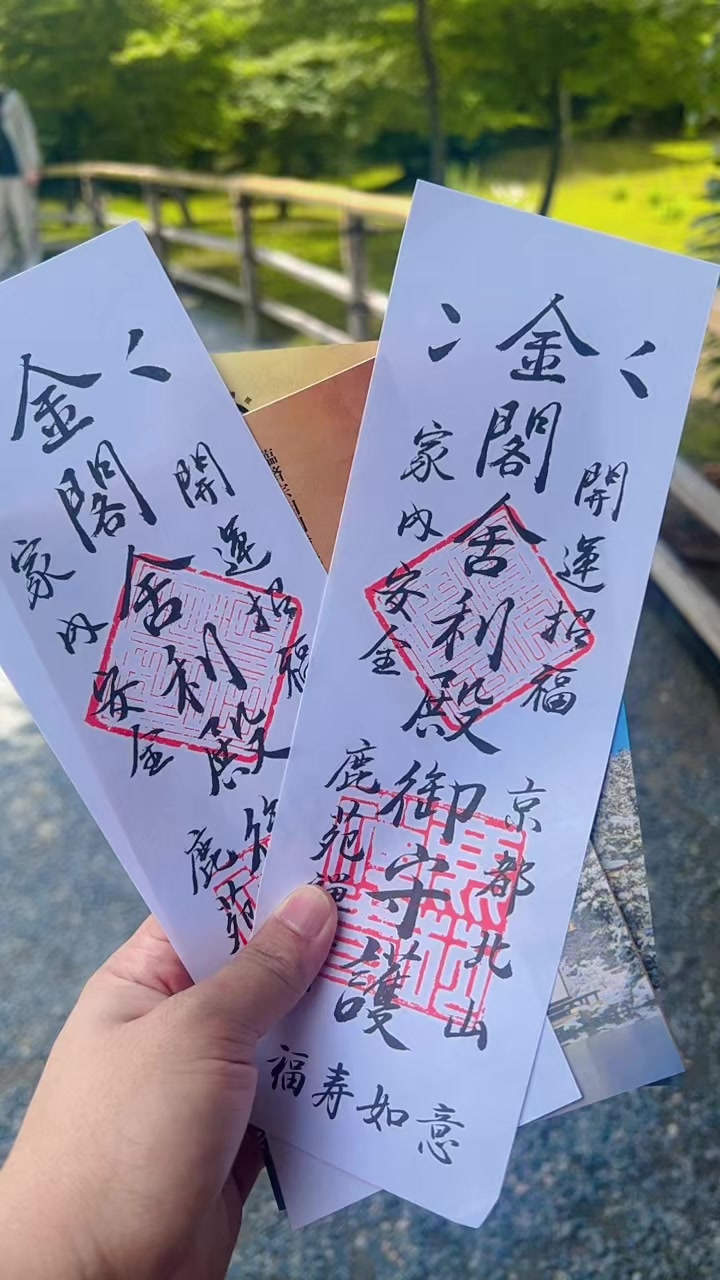 金閣舎利殿御守護
開運招福
家内安全
京都北山
鹿苑禅
福寿如意
金閣舎利殿
開運招福
家内安全
鹿苑